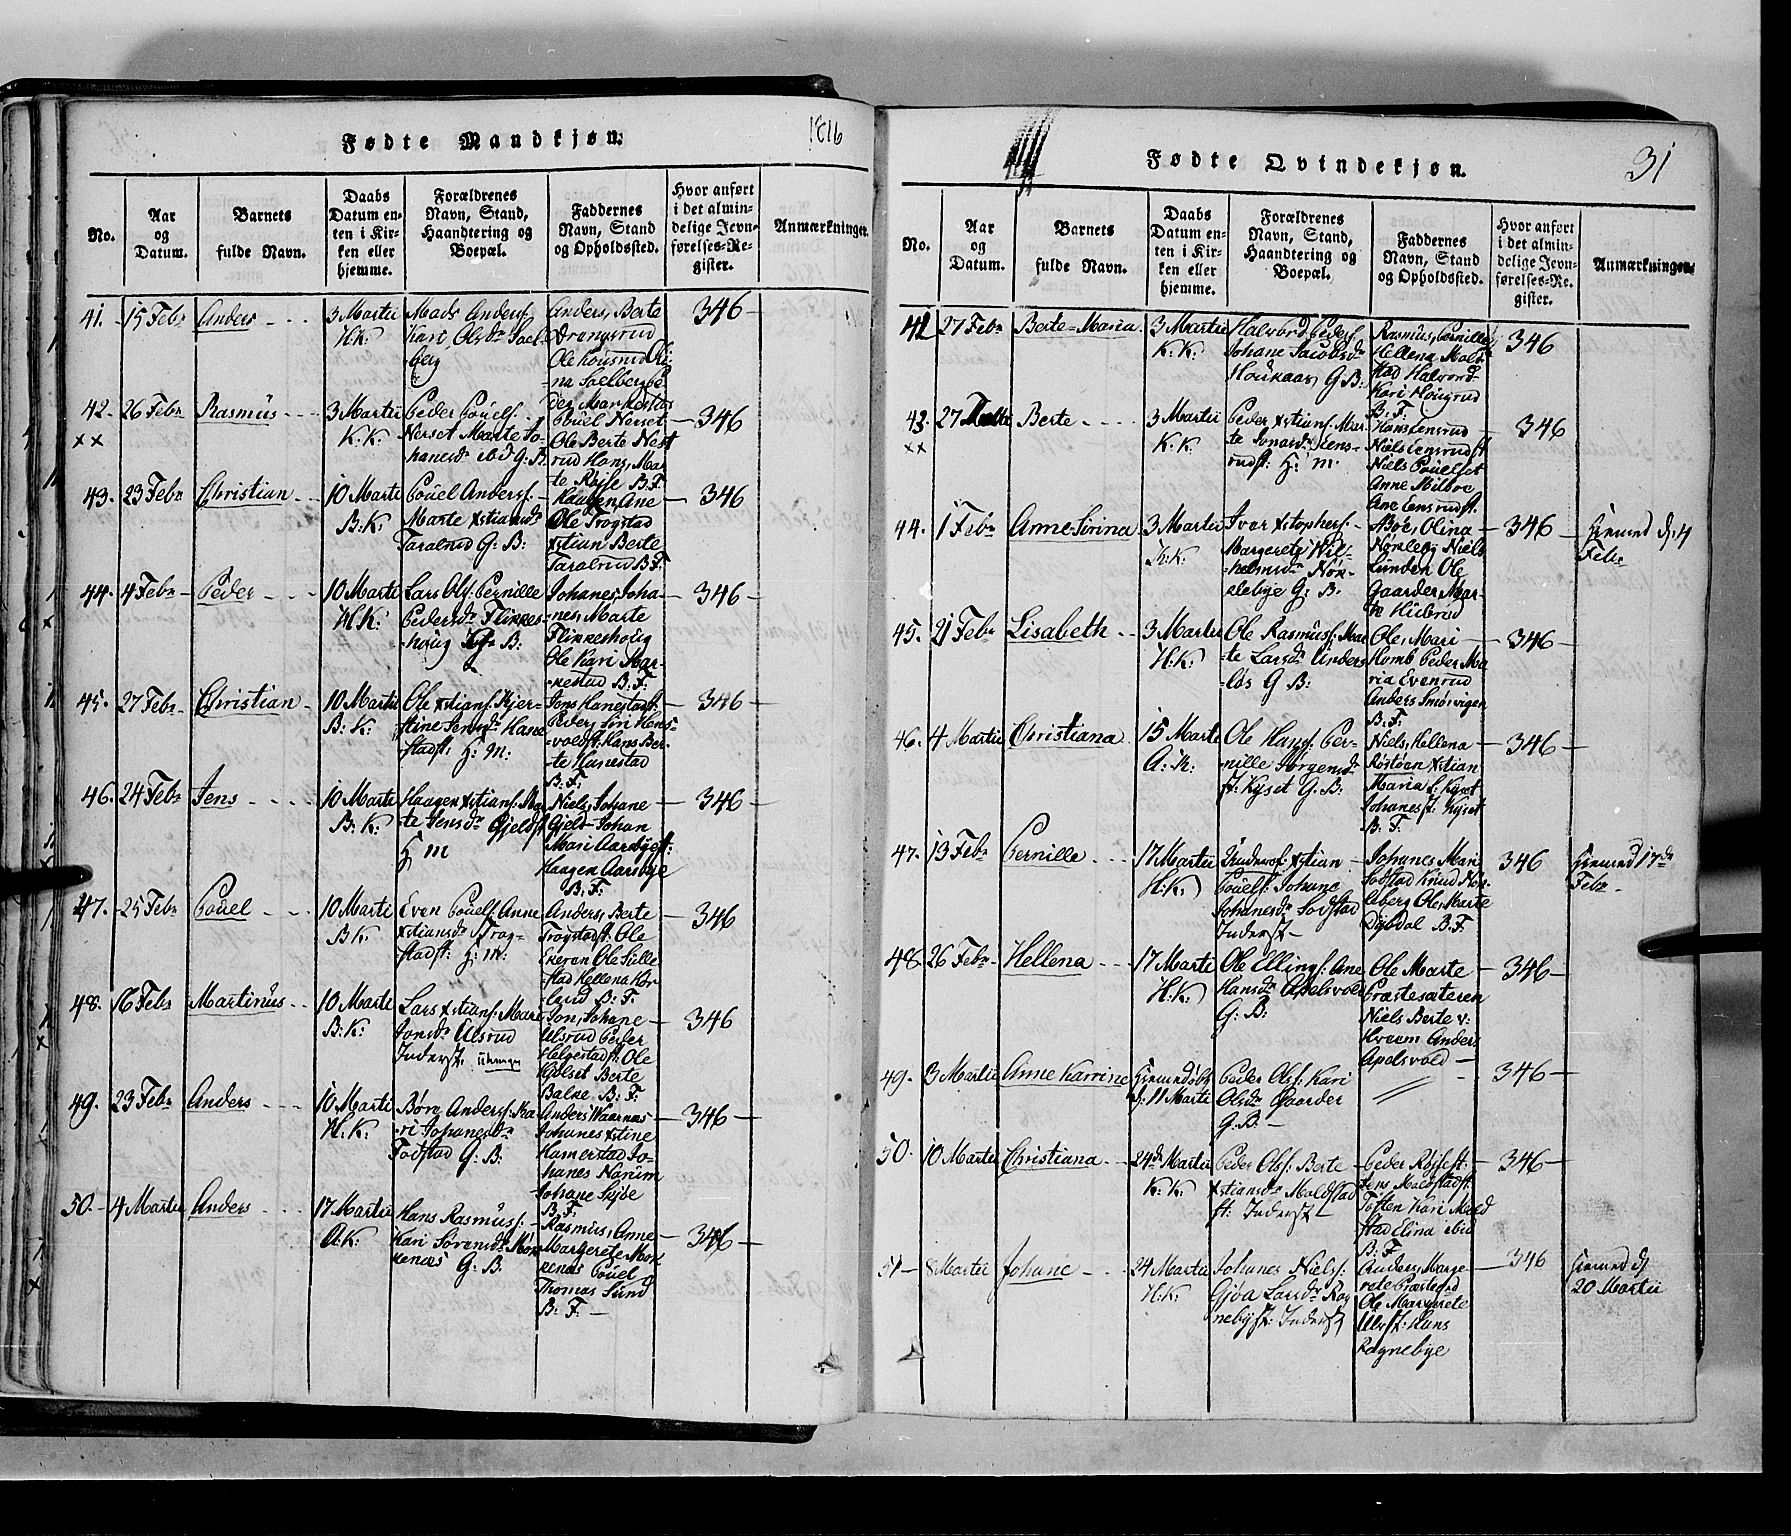 Fødte Mandkjøn. 1816
No.
Aar og Datum.
Barnets fulde Navn.
Daabs Datum enten i Kirken eller hjemme.
Forældrenes Navn, Stand, Haandtering og Boepæl.
Faddernes Navn, Stand og Opholdssted.
Hvor anført i det almindelige Jevnførelses-Register.
Anmærkninger.
41. 15 Febr Anders 3 Martii 346
H.K.
Mads Andersf.
Kari Olsdr Soel-
berg
Anders, Berte
Drengsrud
42. 26 Febr Rasmus 3 Martii 346
xx K.K.
Peder Pouelsf.
Nerset Marte Jo-
hanesdr ibid G.B.
Pouel Nerset
Ole Berte Nest
rud Hans, Mar
te B.F.
43. 23 Febr Christian 10 Marti 346
B.K.
Pouel Andersf.
Marte xstiansdr
Taralrud G:B:
Haugen Ane
Ole Trogstad
xstian Berte
Taralrud B.F.
44. 4 Febr Peder 10 Marti 346
H.K.
Lars Olsf. Pernille
Pedersdr Flikkes-
houg G:B:
Johanes, Joha-
nes, Marte
Flikkeshoug
Ole Kari Mar-
kestad B.F.
45. 27 Febr Christian 10 Marti 346
B:K:
Ole xstiansf. Kjer-
stine Jensdr Hane
stadf. H:M:
Jens Hanestadf.
voldsf. Hans Ber-
te Hanestad
B:F:
46. 24 Febr Jens 10 Marti 346
B:K:
Haagen xstiansf. Ma
te Jensdr Gjeldsf
H M
Niels, Johane
Gjeld Johan
Mari Aarsbyef:
Haagen Aarsbye
B:F:
47. 25 Febr Pouel 10 Marti 346
B K:
Even Pouelsf. Anne
xstiansdr Trog-
stadf: H:M:
Anders, Berte
Trogstadf. Ole
Ekeren Ole Sille
stad Hellena Kør
land B:F.
48. 16 Febr Martinus 10 Marti 346
B:K:
Lars xstiansf. Mari
Jonsdr Ulsrud
Inderst.
Jon, Johane
Ulsrud Peder
Helgestadf: Ole
Hølset Berte
Balne B:F:
49. 23 Febr Anders 10 Marti 346
H.K:
Børe Andersf. Ka
ri Johanesdr
Fodstad G:B:
Anders Waarnes
Johanes xstine
Hamerstad Jo-
hanes Narum
Johane Schøe
B.F:
50. 4 Martii Anders 17 Martii 346
A:K:
Hans Rasmusf:
Kari Sørensdr Mør
kenæs G.B.
Rasmus, Anne
Margrete Mør
kenæs Pouel
Thomas Sund
B:F.
Fødte Qvindekjøn. 31
No.
Aar og Datum.
Barnets fulde Navn.
Daabs Datum enten i Kirken eller hjemme.
Forældrenes Navn, Stand, Haandtering og Boepæl.
Faddernes Navn, Stand og Opholdssted.
Hvor anført i det almindelige Jevnførelses-Register.
Anmærkninger.
42 27 Febr Berte=Maria 3 Martii 346
K:K.
Halvord Pedersf.
Johane Jacobsdr
Houkaas G B:
Rasmus, Pernille,
Hellena Mold
stad Halvord
Kari Hougrud
B:F:
43. 27 Berte 3 Martii 346
xx K:K:
Peder xstiansf. Mar
te Jonasdr Eens-
rudf: H: M:
Hans Eensrud
Niels Eensrudf
Niels Pouelset
Anne Milboe
Ane Eensrudf.
44. 1 Febr Anne Sirina 3 Martii 346 Hiemmed d. 4
H.K. Febr
Iver xstophersf.
Margerete Wil-
helmsdr Nør-
slebye G:B.
Boe, Olina
Nørsleby Niels
Lunden Ole
Gaarder Mar-
te Hilsrud
45. 21 Febr Lisabeth 3 Martii 346
H.K:
Ole Rasmusf: Mar
te Larsdr Anders
los G B:
Ole, Mari
Homb Peder Ma
ria Evenrud
Anders Smørvigen
B:F:
46. 4 Martii Christiana 15 Martii 346
A:K:
Ole Hansf: Per-
nille Jørgensdr
f. Kyset G.B.
Niels, Hellena
Røstøen xstian
Maria f. Kyset
Johanes f: Kyset
B:F.
47. 13 Febr Pernille 17 Martii 346 Hiemmed 17de
H:K: Febr
xstian
Pouelsf: Johane
Johanesdr Sodstad
Inderst
Johanes Mari
Sodstad Knud Nor-
deberg Ole, Marte
Dybdal B.F
48. 26 Febr Hellena 17 Marti 346
H.K:
Ole Ellingsf: Ane
Hansdr Apelsvold
G:B:
Ole Marte
Præstesæteren
Niels Berte v:
Hveem Anders
Apelsvold
49. 3 Martii Anne Karrine Hiemmedøbt 346
d: 11 Marti
Peder Olsf. Kari
Olsdr Gaarder
G:B:
50. 10 Martii Christiana 24de Martii 346
K:K.
Peder Olsf. Berte
xstiansdr Moldstad
f: Inderst
Peder Røssef:
Jens Moldstadf:
Toften Kari Mold
stad Elina ibid
B:F
51 8 Martii Johane 24 Martii 346 Hiemmed d
H:K: 20 Martii
Johanes Nielsf:
Gjøa Larsdr Rog
nebyf: Inderst
Anders, Marge-
rete Præsterud
Ole Margerete
Ulvf: Hans
Rognebye